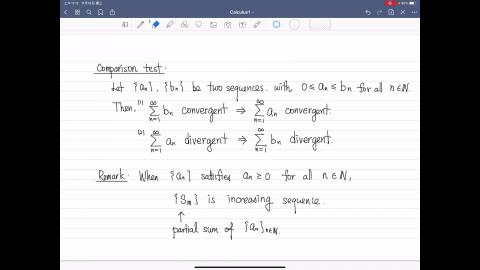 Calculus1
Comparison test:
Let {an}, {bn} be two sequences with 0 ≤ an ≤ bn for all n∈ℕ.
Then, (1) ∑_{n=1}^{∞} bn convergent ⇒ ∑_{n=1}^{∞} an convergent.
(2) ∑_{n=1}^{∞} an divergent ⇒ ∑_{n=1}^{∞} bn divergent.
Remark: When {an} satisfies an ≥ 0 for all n ∈ ℕ,
{Sm} is increasing sequence.
↑
partial sum of {an}n∈ℕ.